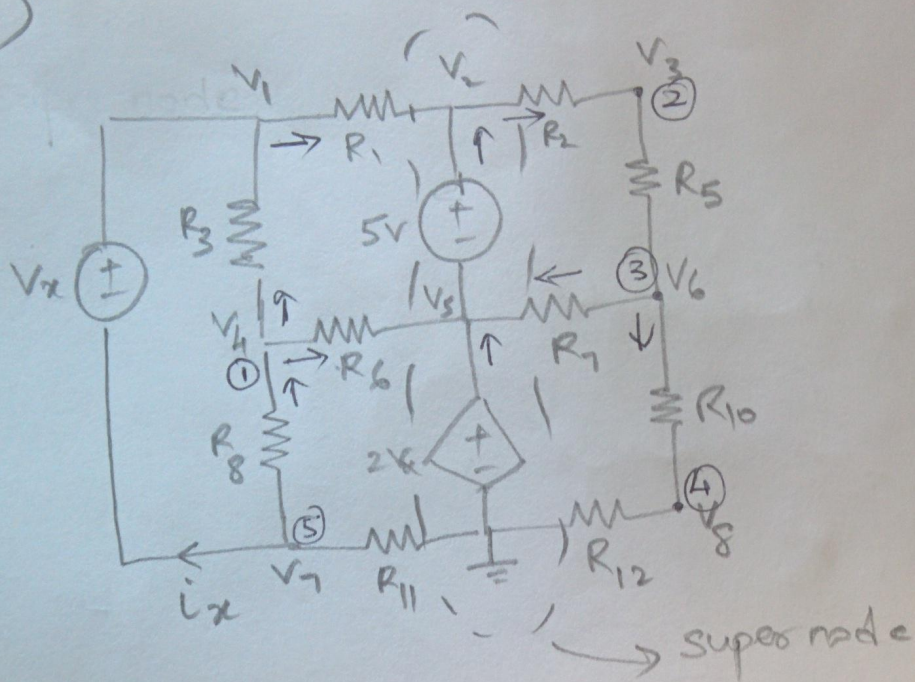 V1
V2
V3
②
R1
R2
R3
R5
5V
Vx
③ V6
V4
V5
①
R6
R7
R8
2Vx
R10
④
V8
⑤
V7
R11
R12
ix
super node